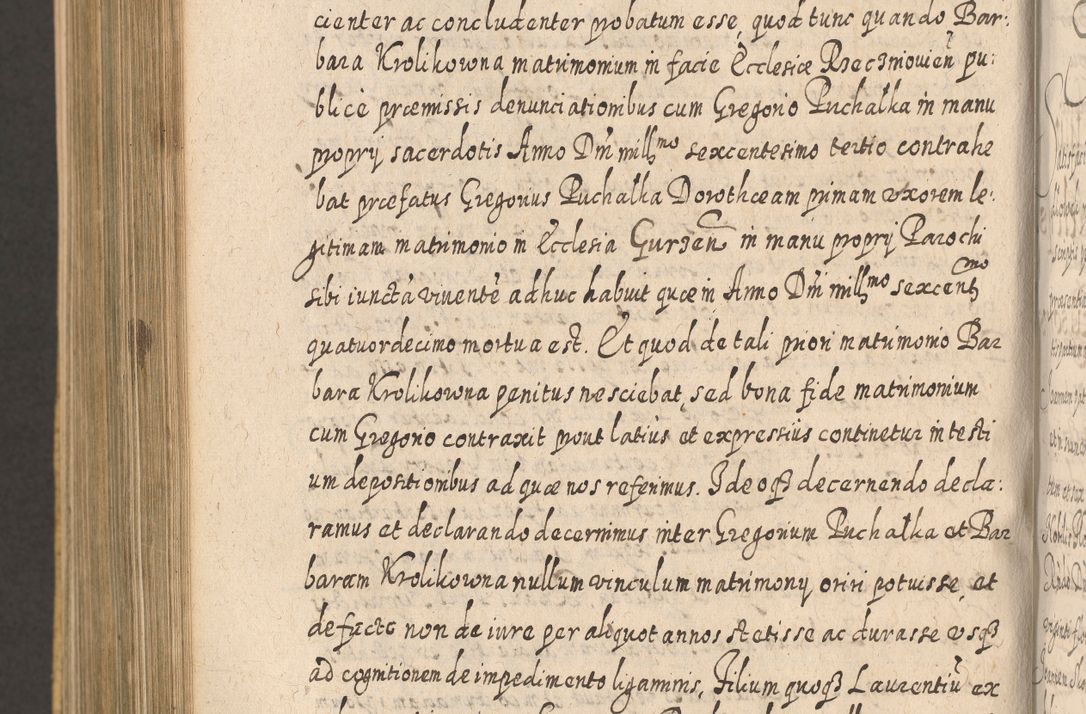 cienter ac concludenter probatum esse, quod tunc quando Bar:
bara Krolikowna matrimonium in facie Ecclesiæ Rzeczniovien̄ pu:
blicè præmissis denunciationibus cum Gregorio Puchałka in manu
proprij sacerdotis Anno Dm̄ mill<sup>mo</sup> sexcentesimo tertio contrahe
bat præfatus Gregorius Puchałka Dorotheam primam uxorem le:
gitimam matrimonio in Ecclesia Gurzen̄ in manu proprij Parochi
sibi iunctã viventẽ adhuc habuit quæ in Anno Dm̄ mill<sup>mo</sup> sexcent<sup>mo</sup>
quatuordecimo mortua est. Et quod de tali priori matrimonio Bar
bara Krolikowna penitus nesciebat, sed bona fide matrimonium
cum Gregorio contraxit prout latiùs et expressiùs continetur in testi
um depositionibus ad quæ nos referimus. Ideoq3 decernendo decla:
ramus et declarando decernimus inter Gregorium Puchałka et Bar
baram Krolikowna nullum vinculum matrimonij oriri potuisse, et
de facto non de iure per aliquot annos stetisse ac durasse usq3
ad cognitionem de impedimento ligaminis, Filium quoq3 Laurentiũ ex